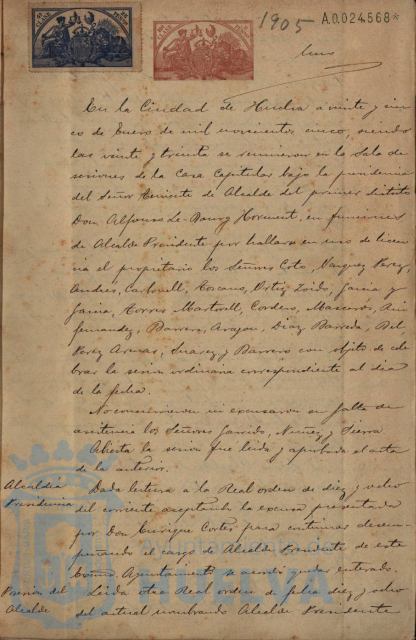 1905
A.0.024.568*
En la Ciudad de Huelva a veinte y cin
co de Enero de mil novecientos cinco, siendo
las veinte y treinta se reunieron en la Sala de
sesiones de la Casa Capitular bajo la presidencia
del Señor Teniente de Alcalde del primer distrito
Don Alfonso Le-Bourg Horment, en funciones
de Alcalde Presidente por hallarse en uso de licen
cia el propietario los Señores Coto, Vazquez Perez,
Andrés, Carbonell, Toscano, Ortiz, Garcia y
Garcia, Torres Martwell, Cordero, Mascarós,
Fernandez, Barrera, Aragon, Diaz Barreda, Bel
Perez Armas, Suarez y Barrero con objeto de cele
brar la sesion ordinaria correspondiente al dia
de la fecha.
No concurrieron ni excusaron su falta de
asistencia los Señores Garrido, Nuñez y Sierra
Abierta la sesion fue leida y aprobada el acta
de la anterior.
Alcaldia
Presidencia
Dada lectura a la Real orden de diez y ocho
del corriente aceptando la excusa presentada
por Don Enrique Cortes para continuar desem
peñando el cargo de Alcalde Presidente de este
Excmo. Ayuntamiento se acordó quedar enterado.
Alcalde
Leida otra Real orden de fecha diez y ocho
del actual nombrando Alcalde Presidente
Ayuntamiento de
HUELVA